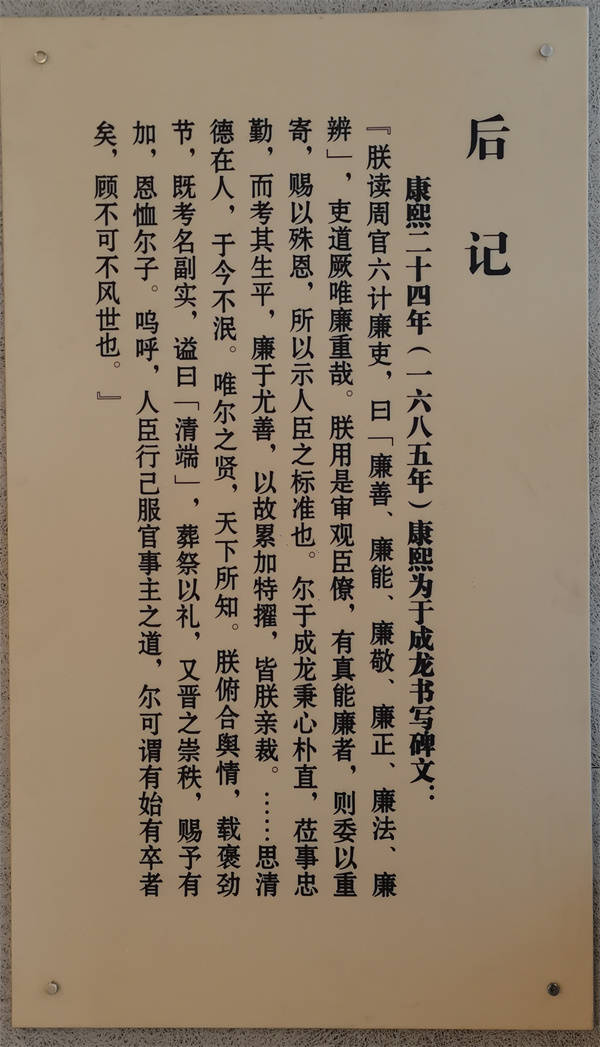 后记
康熙二十四年（一六八五年）康熙为于成龙书写碑文：
『朕读周官六计廉吏，曰「廉善、廉能、廉敬、廉正、廉法、廉
辨」，吏道厥唯廉重哉。朕用是审观臣僚，有真能廉者，则委以重
寄，赐以殊恩，所以示人臣之标准也。尔于成龙秉心朴直，莅事忠
勤，而考其生平，廉于尤善，以故累加特擢，皆朕亲裁。……思清
德在人，于今不泯。唯尔之贤，天下所知。朕俯合舆情，载褒劲
节，既考名副实，谥曰「清端」，葬祭以礼，又晋之崇秩，赐予有
加，恩恤尔子。呜呼，人臣行己服官事主之道，尔可谓有始有卒者
矣，顾不可不风世也。』